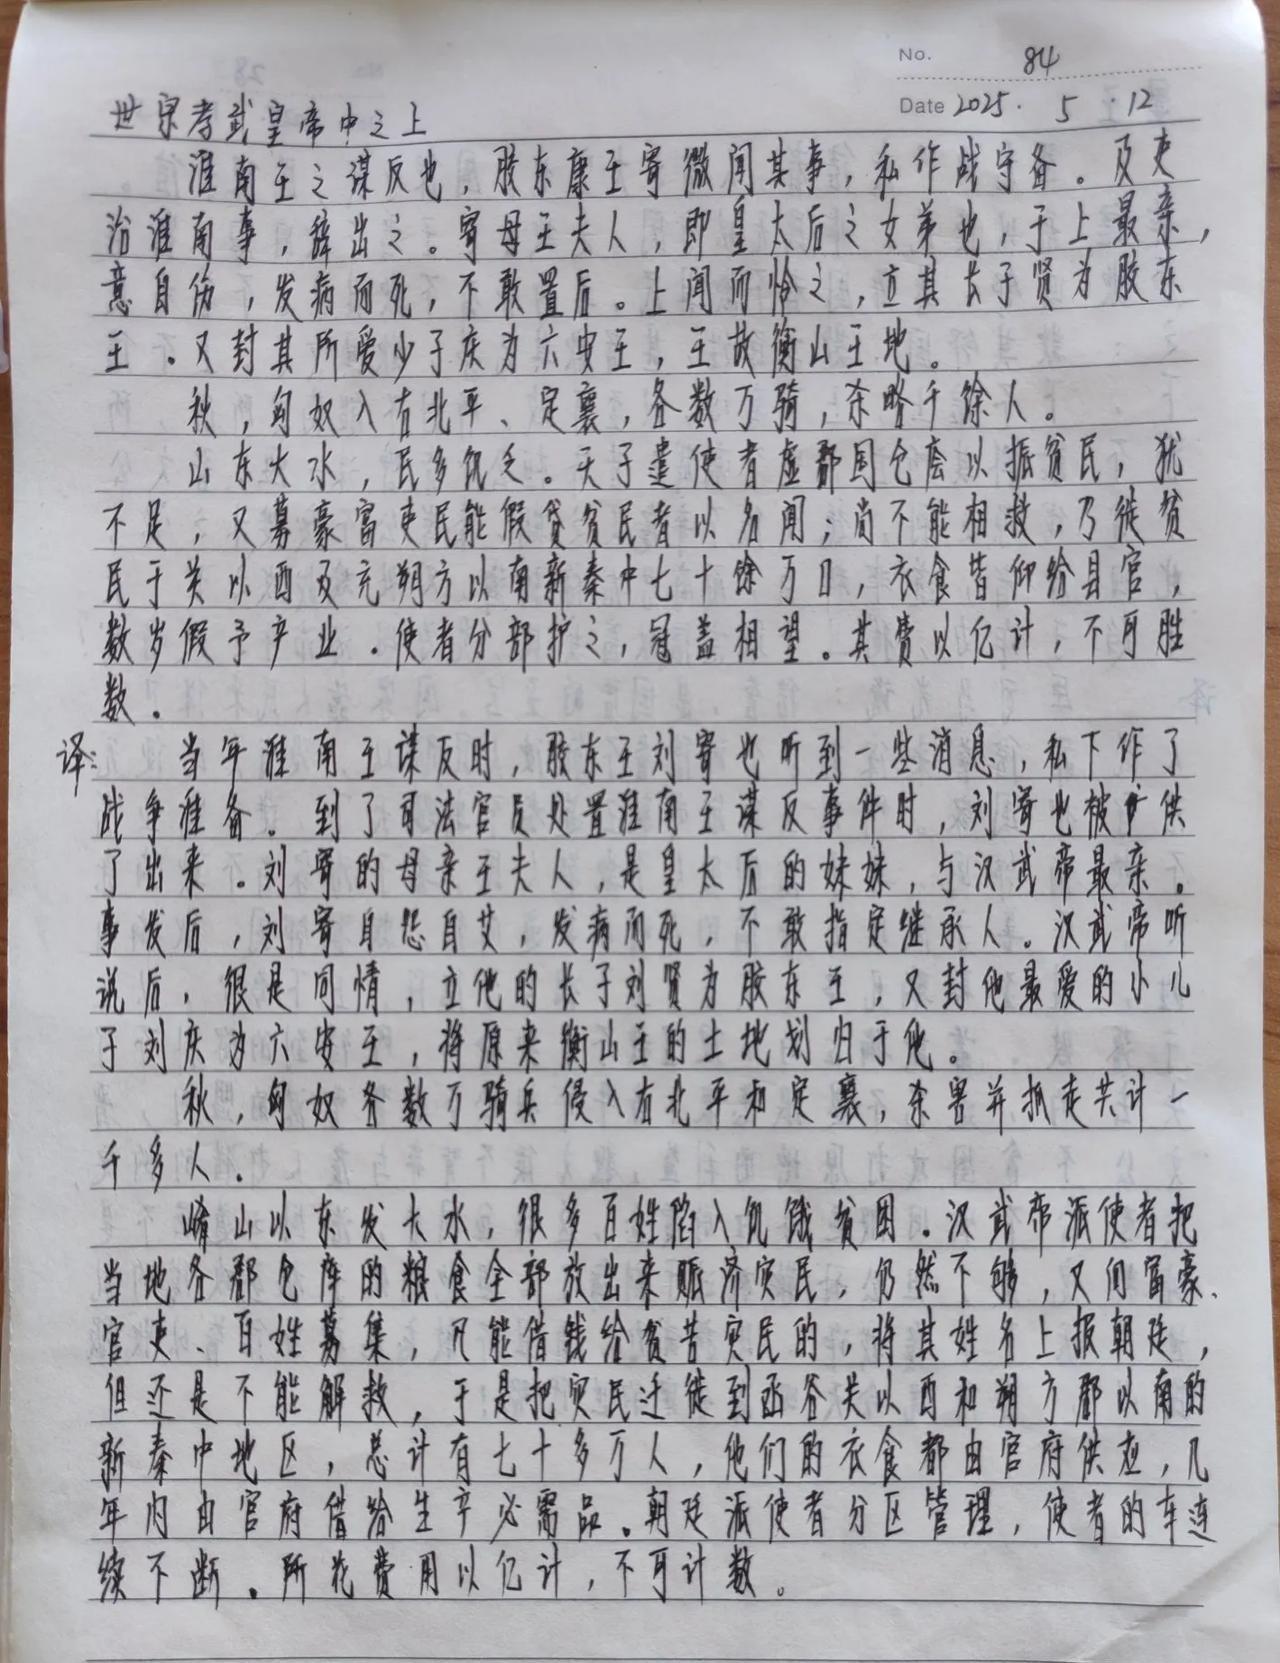 No. 84
Date 2025. 5. 12
世宗孝武皇帝中之上
淮南王之谋反也，胶东康王寄微闻其事，私作战守备。及吏
治淮南事，辞出之。寄母王夫人，即皇太后之女弟也，于上最亲，
意自伤，发病而死，不敢置后。上闻而怜之，立其长子贤为胶东
王。又封其所爱少子庆为六安王，王故衡山王地。
秋，匈奴入右北平、定襄，各数万骑，杀略千余人。
山东大水，民多饥乏。天子遣使者虚郡国仓廪以振贫民，犹
不足；又募豪富吏民能假贷贫民者以名闻；尚不能相救，乃徙贫
民于关以西及充朔方以南新秦中七十馀万口，衣食皆仰给县官，
数岁假予产业。使者分部护之，冠盖相望。其费以亿计，不可胜
数。
译：当年淮南王谋反时，胶东王刘寄也听到一些消息，私下作了
战争准备。到了司法官员处置淮南王谋反事件时，刘寄也被供
了出来。刘寄的母亲王夫人，是皇太后的妹妹，与汉武帝最亲。
事发后，刘寄自怨自艾，发病而死，不敢指定继承人。汉武帝听
说后，很是同情，立他的长子刘贤为胶东王，又封他最爱的小儿
子刘庆为六安王，将原来衡山王的土地划归于他。
秋，匈奴各数万骑兵侵入右北平和定襄，杀害并抓走共计一
千多人。
崤山以东发大水，很多百姓陷入饥饿贫困。汉武帝派使者把
当地各郡仓库的粮食全部放出来赈济灾民，仍然不够，又向富豪、
官吏、百姓募集，凡能借钱给贫苦灾民的，将其姓名上报朝廷，
但还是不能解救，于是把灾民迁徙到函谷关以西和朔方郡以南的
新秦中地区，总计有七十多万人，他们的衣食都由官府供应，几
年内由官府借给生产必需品。朝廷派使者分区管理，使者的车连
续不断。所花费用以亿计，不可计数。